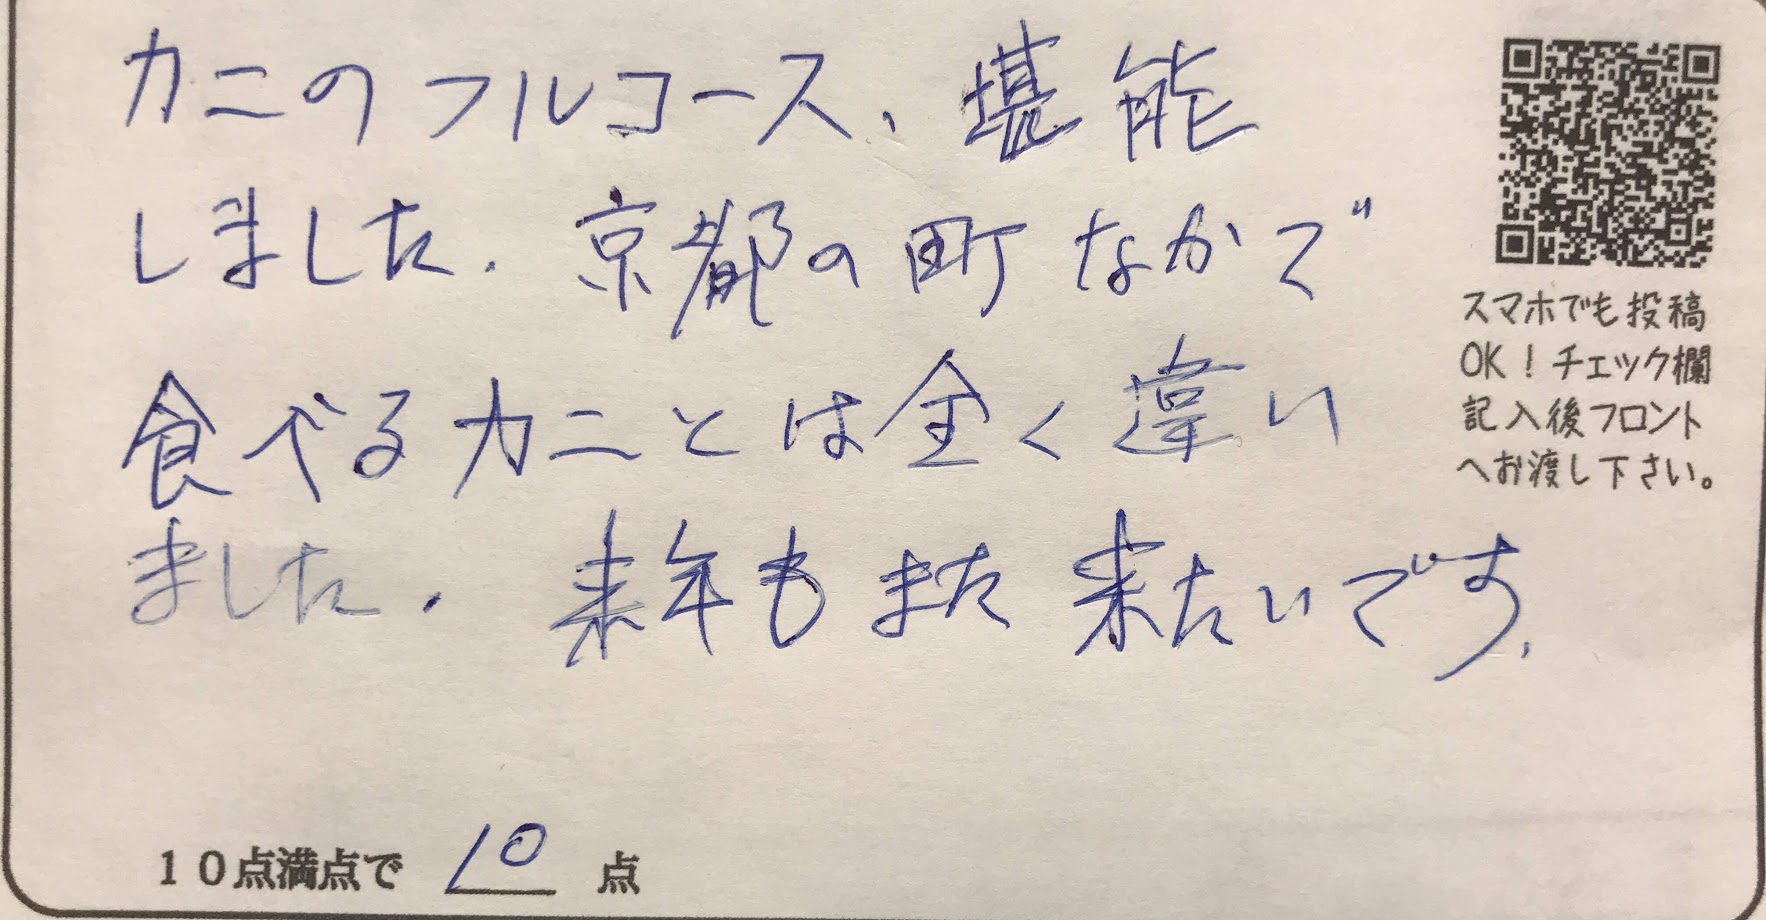 カニのフルコース、堪能
しました. 京都の町なかで
食べるカニとは全く違い
ました. 来年もまた来たいです.
スマホでも投稿
OK！チェック欄
記入後フロント
へお渡し下さい。
１０点満点で 10 点